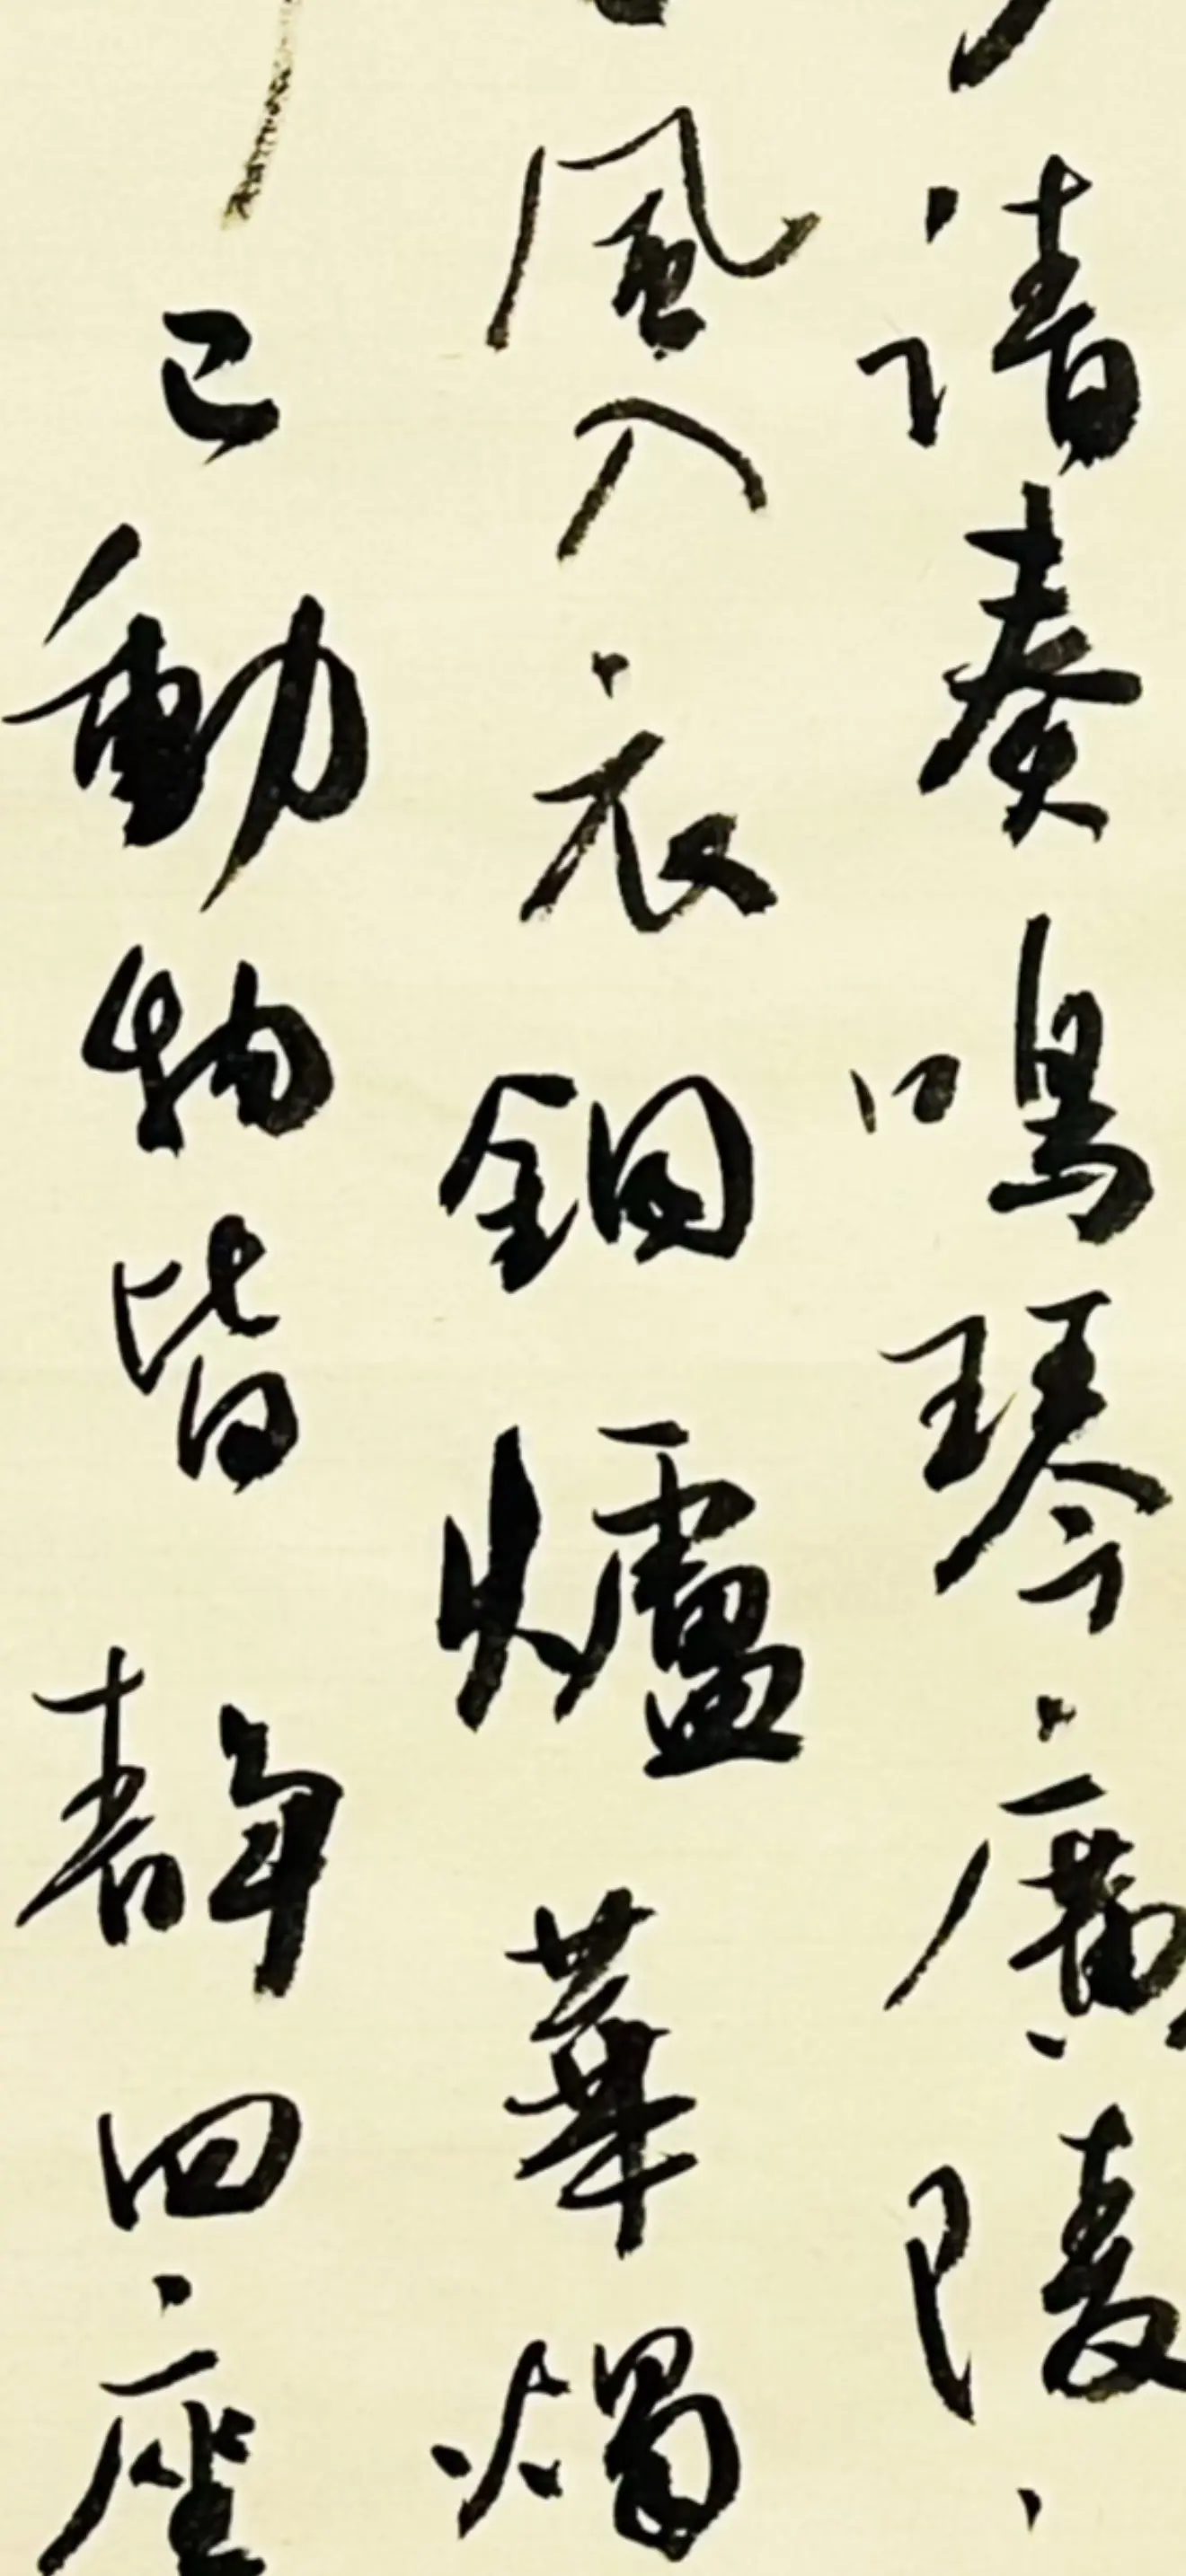 清奏鳴琴廣陵
風入衣銅爐華燭
已動物皆靜四座